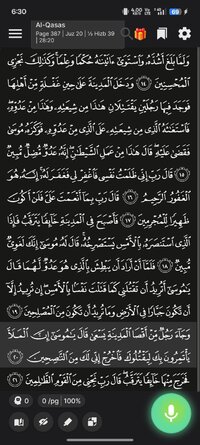 6:30
4.00 KB/S
69
Al-Qasas
Page 387 | Juz 20 | ½ Hizb 39
| 28:20
وَلَمَّا بَلَغَ أَشُدَّهُۥ وَٱسْتَوَىٰٓ ءَاتَيْنَٰهُ حُكْمًا وَعِلْمًا ۚ وَكَذَٰلِكَ نَجْزِى
ٱلْمُحْسِنِينَ ١٤ وَدَخَلَ ٱلْمَدِينَةَ عَلَىٰ حِينِ غَفْلَةٍ مِّنْ أَهْلِهَا
فَوَجَدَ فِيهَا رَجُلَيْنِ يَقْتَتِلَانِ هَٰذَا مِن شِيعَتِهِۦ وَهَٰذَا مِنْ عَدُوِّهِۦ ۖ
فَٱسْتَغَٰثَهُ ٱلَّذِى مِن شِيعَتِهِۦ عَلَى ٱلَّذِى مِنْ عَدُوِّهِۦ فَوَكَزَهُۥ مُوسَىٰ
فَقَضَىٰ عَلَيْهِ ۖ قَالَ هَٰذَا مِنْ عَمَلِ ٱلشَّيْطَٰنِ ۖ إِنَّهُۥ عَدُوٌّ مُّضِلٌّ مُّبِينٌ
١٥ قَالَ رَبِّ إِنِّى ظَلَمْتُ نَفْسِى فَٱغْفِرْ لِى فَغَفَرَ لَهُۥٓ ۚ إِنَّهُۥ هُوَ
ٱلْغَفُورُ ٱلرَّحِيمُ ١٦ قَالَ رَبِّ بِمَآ أَنْعَمْتَ عَلَىَّ فَلَنْ أَكُونَ
ظَهِيرًا لِّلْمُجْرِمِينَ ١٧ فَأَصْبَحَ فِى ٱلْمَدِينَةِ خَآئِفًا يَتَرَقَّبُ فَإِذَا
ٱلَّذِى ٱسْتَنصَرَهُۥ بِٱلْأَمْسِ يَسْتَصْرِخُهُۥ ۚ قَالَ لَهُۥ مُوسَىٰٓ إِنَّكَ لَغَوِىٌّ
مُّبِينٌ ١٨ فَلَمَّآ أَنْ أَرَادَ أَن يَبْطِشَ بِٱلَّذِى هُوَ عَدُوٌّ لَّهُمَا قَالَ
يَٰمُوسَىٰٓ أَتُرِيدُ أَن تَقْتُلَنِى كَمَا قَتَلْتَ نَفْسًۢا بِٱلْأَمْسِ ۖ إِن تُرِيدُ إِلَّآ
أَن تَكُونَ جَبَّارًا فِى ٱلْأَرْضِ وَمَا تُرِيدُ أَن تَكُونَ مِنَ ٱلْمُصْلِحِينَ ١٩
وَجَآءَ رَجُلٌ مِّنْ أَقْصَا ٱلْمَدِينَةِ يَسْعَىٰ قَالَ يَٰمُوسَىٰٓ إِنَّ ٱلْمَلَأَ
يَأْتَمِرُونَ بِكَ لِيَقْتُلُوكَ فَٱخْرُجْ إِنِّى لَكَ مِنَ ٱلنَّٰصِحِينَ ٢٠
فَخَرَجَ مِنْهَا خَآئِفًا يَتَرَقَّبُ ۖ قَالَ رَبِّ نَجِّنِى مِنَ ٱلْقَوْمِ ٱلظَّٰلِمِينَ ٢١
0
0 /pg
100%